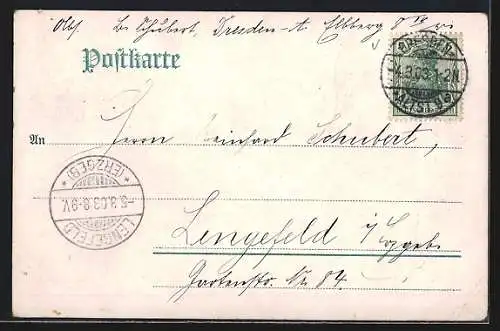 Abs. Schubert, Dresden-A Elbberg
Postkarte
DRESDEN
4.3.03.1-2N
ALTST.
An
Herrn Reinhard Schubert,
Lengefeld i/Erzgeb.
Gartenstr. No 84.
LENGEFELD
-5.3.03.8-9V.
* (ERZGEB) *